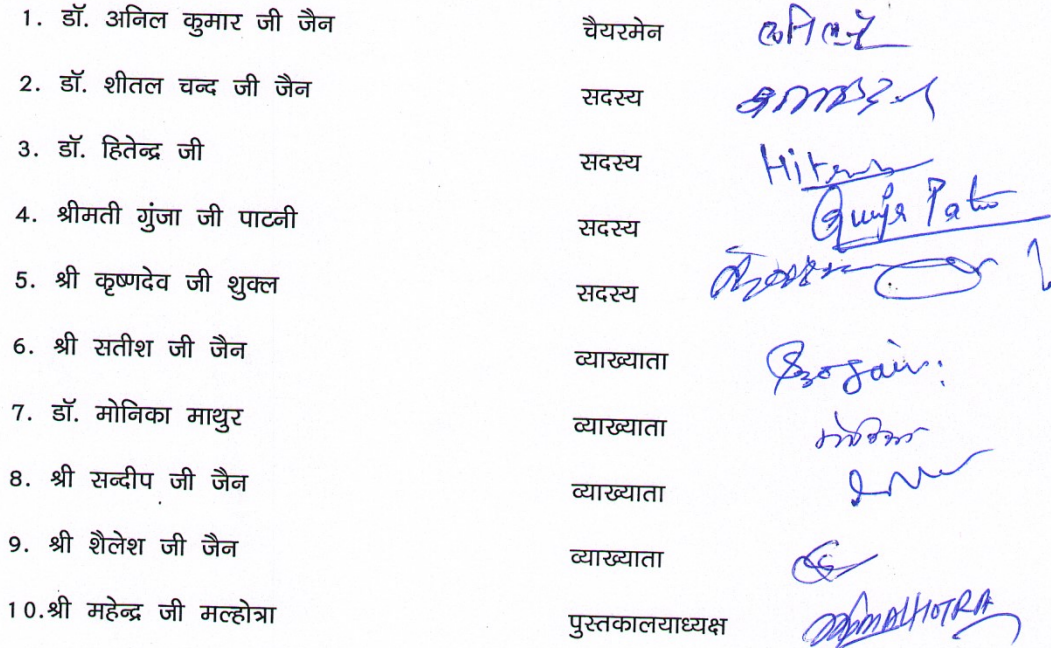 1. डॉ. अनिल कुमार जी जैन चैयरमेन
2. डॉ. शीतल चन्द जी जैन सदस्य
3. डॉ. हितेन्द्र जी सदस्य
4. श्रीमती गुंजा जी पाटनी सदस्य
5. श्री कृष्णदेव जी शुक्ल सदस्य
6. श्री सतीश जी जैन व्याख्याता
7. डॉ. मोनिका माथुर व्याख्याता मोनिका
8. श्री सन्दीप जी जैन व्याख्याता
9. श्री शैलेश जी जैन व्याख्याता
10.श्री महेन्द्र जी मल्होत्रा पुस्तकालयाध्यक्ष